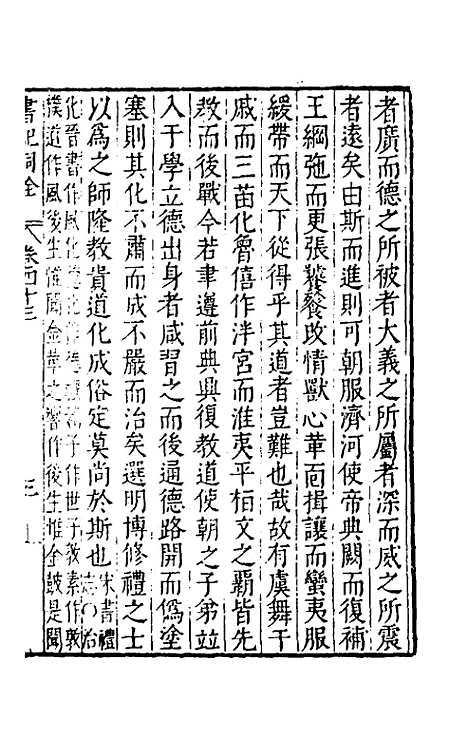 者廣而德之所被者大義之所屬者深而威之所震
者遠矣由斯而進則可朝服濟河使帝典闕而復補
王綱弛而更張饕餮改情獸心革面揖讓而蠻夷服
緩帶而天下從得乎其道者豈難也哉故有虞舞干
戚而三苗化魯僖作泮宮而淮夷平桓文之霸皆先
教而後戰今若聿遵前典興復教道使朝之子弟並
入于學立德出身者咸習之而後通德路開而偽塗
塞則其化不肅而成不嚴而治矣選明博修禮之士
以爲之師隆教貴道化成俗定莫尚於斯也宋書禮
志〇治
化晉書作風化
子作世子敦素作敦
樸道作風後生惟聞金革之響作後生惟金鼓是聞
書記洞詮 卷四十三 三